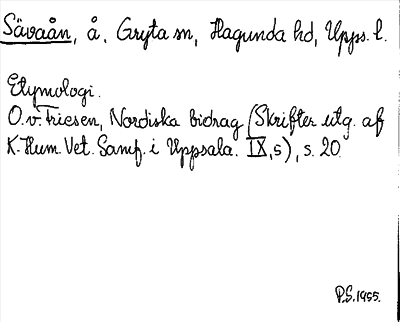 Sävaån, å, Gryta sn, Hagunda hd, Upps. l.
Etymologi.
O. v. Friesen, Nordiska bidrag (Skrifter utg. af
K. Hum. Vet. Samf. i Uppsala. IX,5), s. 20.
P.S. 1955.